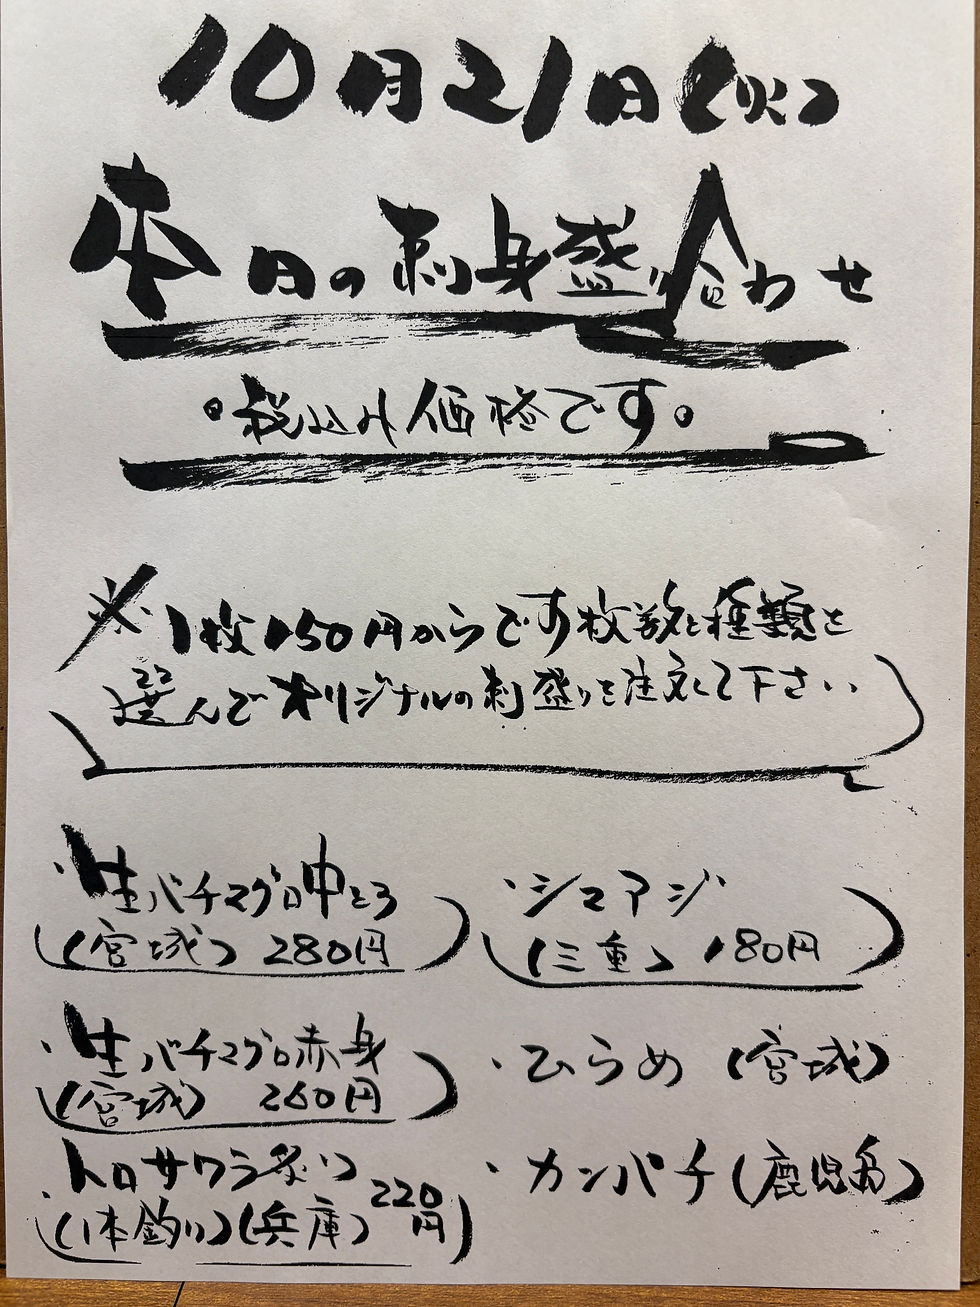 10月21日(火)
本日の刺身盛り合わせ
・税込み価格です。
※1枚150円からです枚数と種類を
選んでオリジナルの刺盛りを注文して下さい
・生バチマグロ中とろ
(宮城) 280円
・生バチマグロ赤身
(宮城) 260円
・トロサワラ炙り
(1本釣り)(兵庫) 220円
・シマアジ
(三重) 180円
・ひらめ (宮城)
・カンパチ(鹿児島)